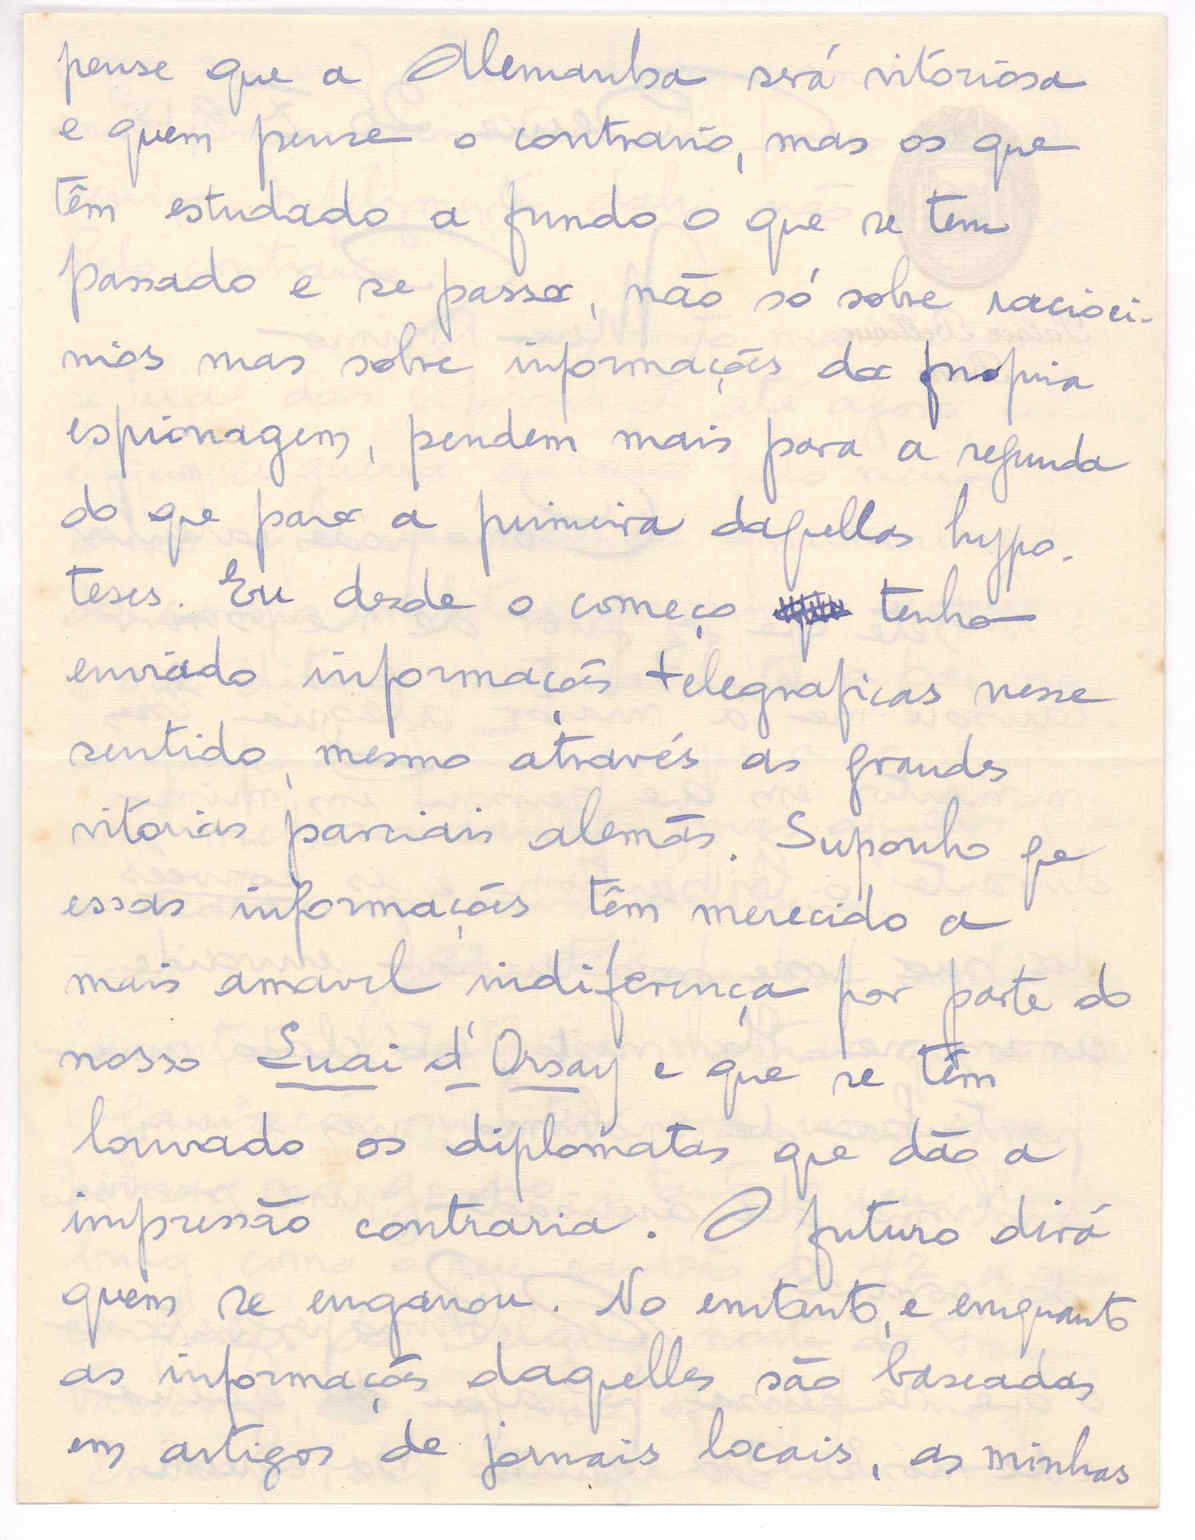 pense que a Alemanha será vitoriosa
e quem pense o contrario, mas os que
têm estudado a fundo o que se tem
passado e se passa, não só sobre raciocí-
nios mas sobre informações da propria
espionagem, pendem mais para a segunda
do que para a primeira daquellas hypo-
teses. Eu desde o começo tenho
enviado informações telegraficas nesse
sentido, mesmo através as grandes
vitorias parciais alemãs. Suponho que
essas informações têm merecido a
mais amavel indiferença por parte do
nosso Quai d'Orsay e que se têm
louvado os diplomatas que dão a
impressão contraria. O futuro dirá
quem se enganou. No emtanto, e emquanto
as informações daquelles são baseadas
em artigos de jornais locais, as minhas